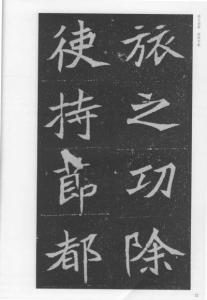 旅之功除
使持節都